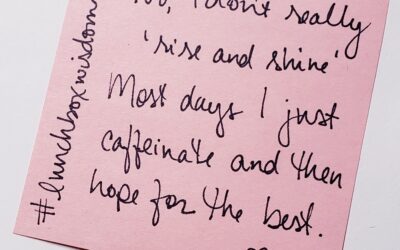 I don't really
'rise and shine'
Most days I just
caffeinate and then
hope for the best.
#lunchboxwisdom